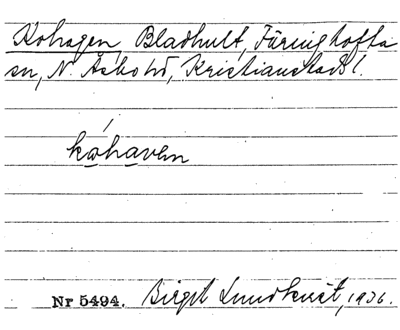 Kohagen, Bladhult, Färinghofta
sn, N. Åsbo hd, Kristianstads l.
kóhaven
Nr 5494. Birgit Lundkvist, 1936.